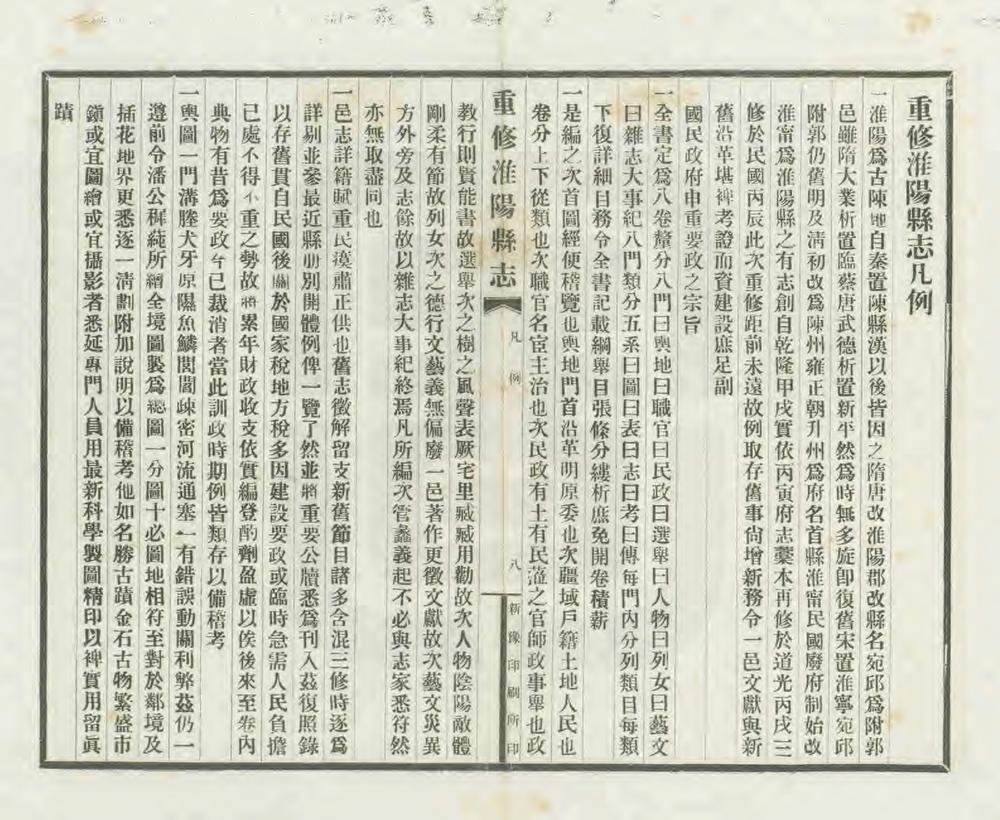 重修淮陽縣志凡例
一淮陽爲古陳地自秦置陳縣漢以後皆因之隋唐改淮陽郡改縣名宛邱爲附郭
邑雖隋大業析置臨蔡唐武德析置新平然爲時無多旋卽復舊宋置淮寧宛邱
附郭仍舊明及清初改爲陳州雍正朝升州爲府名首縣淮甯民國廢府制始改
淮甯爲淮陽縣之有志創自乾隆甲戌實依丙寅府志藁本再修於道光丙戌三
修於民國丙辰此次重修距前未遠故例取存舊事尙增新務令一邑文獻與新
舊沿革堪裨考證而資建設庶足副
國民政府申重要政之宗旨
一全書定爲八卷釐分八門曰輿地曰職官曰民政曰選舉曰人物曰列女曰藝文
曰雜志大事紀八門類分五系曰圖曰表曰志曰考曰傳每門內分列類目每類
下復詳細目務令全書記載綱舉目張條分縷析庶免開卷積薪
一是編之次首圖經便稽覽也輿地門首沿革明原委也次疆域戶籍土地人民也
卷分上下從類也次職官名宦主治也次民政有土有民蒞之官師政事舉也政
重修淮陽縣志
凡例
八
新豫印刷所印
教行則賢能書故選舉次之樹之風聲表厥宅里臧臧用勸故次人物陰陽敵體
剛柔有節故列女次之德行文藝義無偏廢一邑著作更徵文獻故次藝文災異
方外旁及志餘故以雜志大事紀終焉凡所編次管蠡義起不必與志家悉符然
亦無取盡同也
一邑志詳籍賦重民瘼肅正供也舊志徵解留支新舊節目諸多含混三修時逐爲
詳剔並參最近縣冊別開體例俾一覽了然並將重要公牘悉爲刊入茲復照錄
以存舊貫自民國後關於國家稅地方稅多因建設要政或臨時急需人民負擔
已處不得不重之勢故將累年財政收支依實編登酌劑盈虛以俟後來至卷內
典物有昔爲要政今已裁消者當此訓政時期例皆類存以備稽考
一輿圖一門溝塍犬牙原隰魚鱗閭閻疎密河流通塞一有錯誤動關利弊茲仍一
遵前令潘公穉蒓所繪全境圖製爲總圖一分圖十必圖地相符至對於鄰境及
插花地界更悉逐一清劃附加說明以備稽考他如名勝古蹟金石古物繁盛市
鎭或宜圖繪或宜攝影者悉延專門人員用最新科學製圖精印以裨實用留眞
蹟